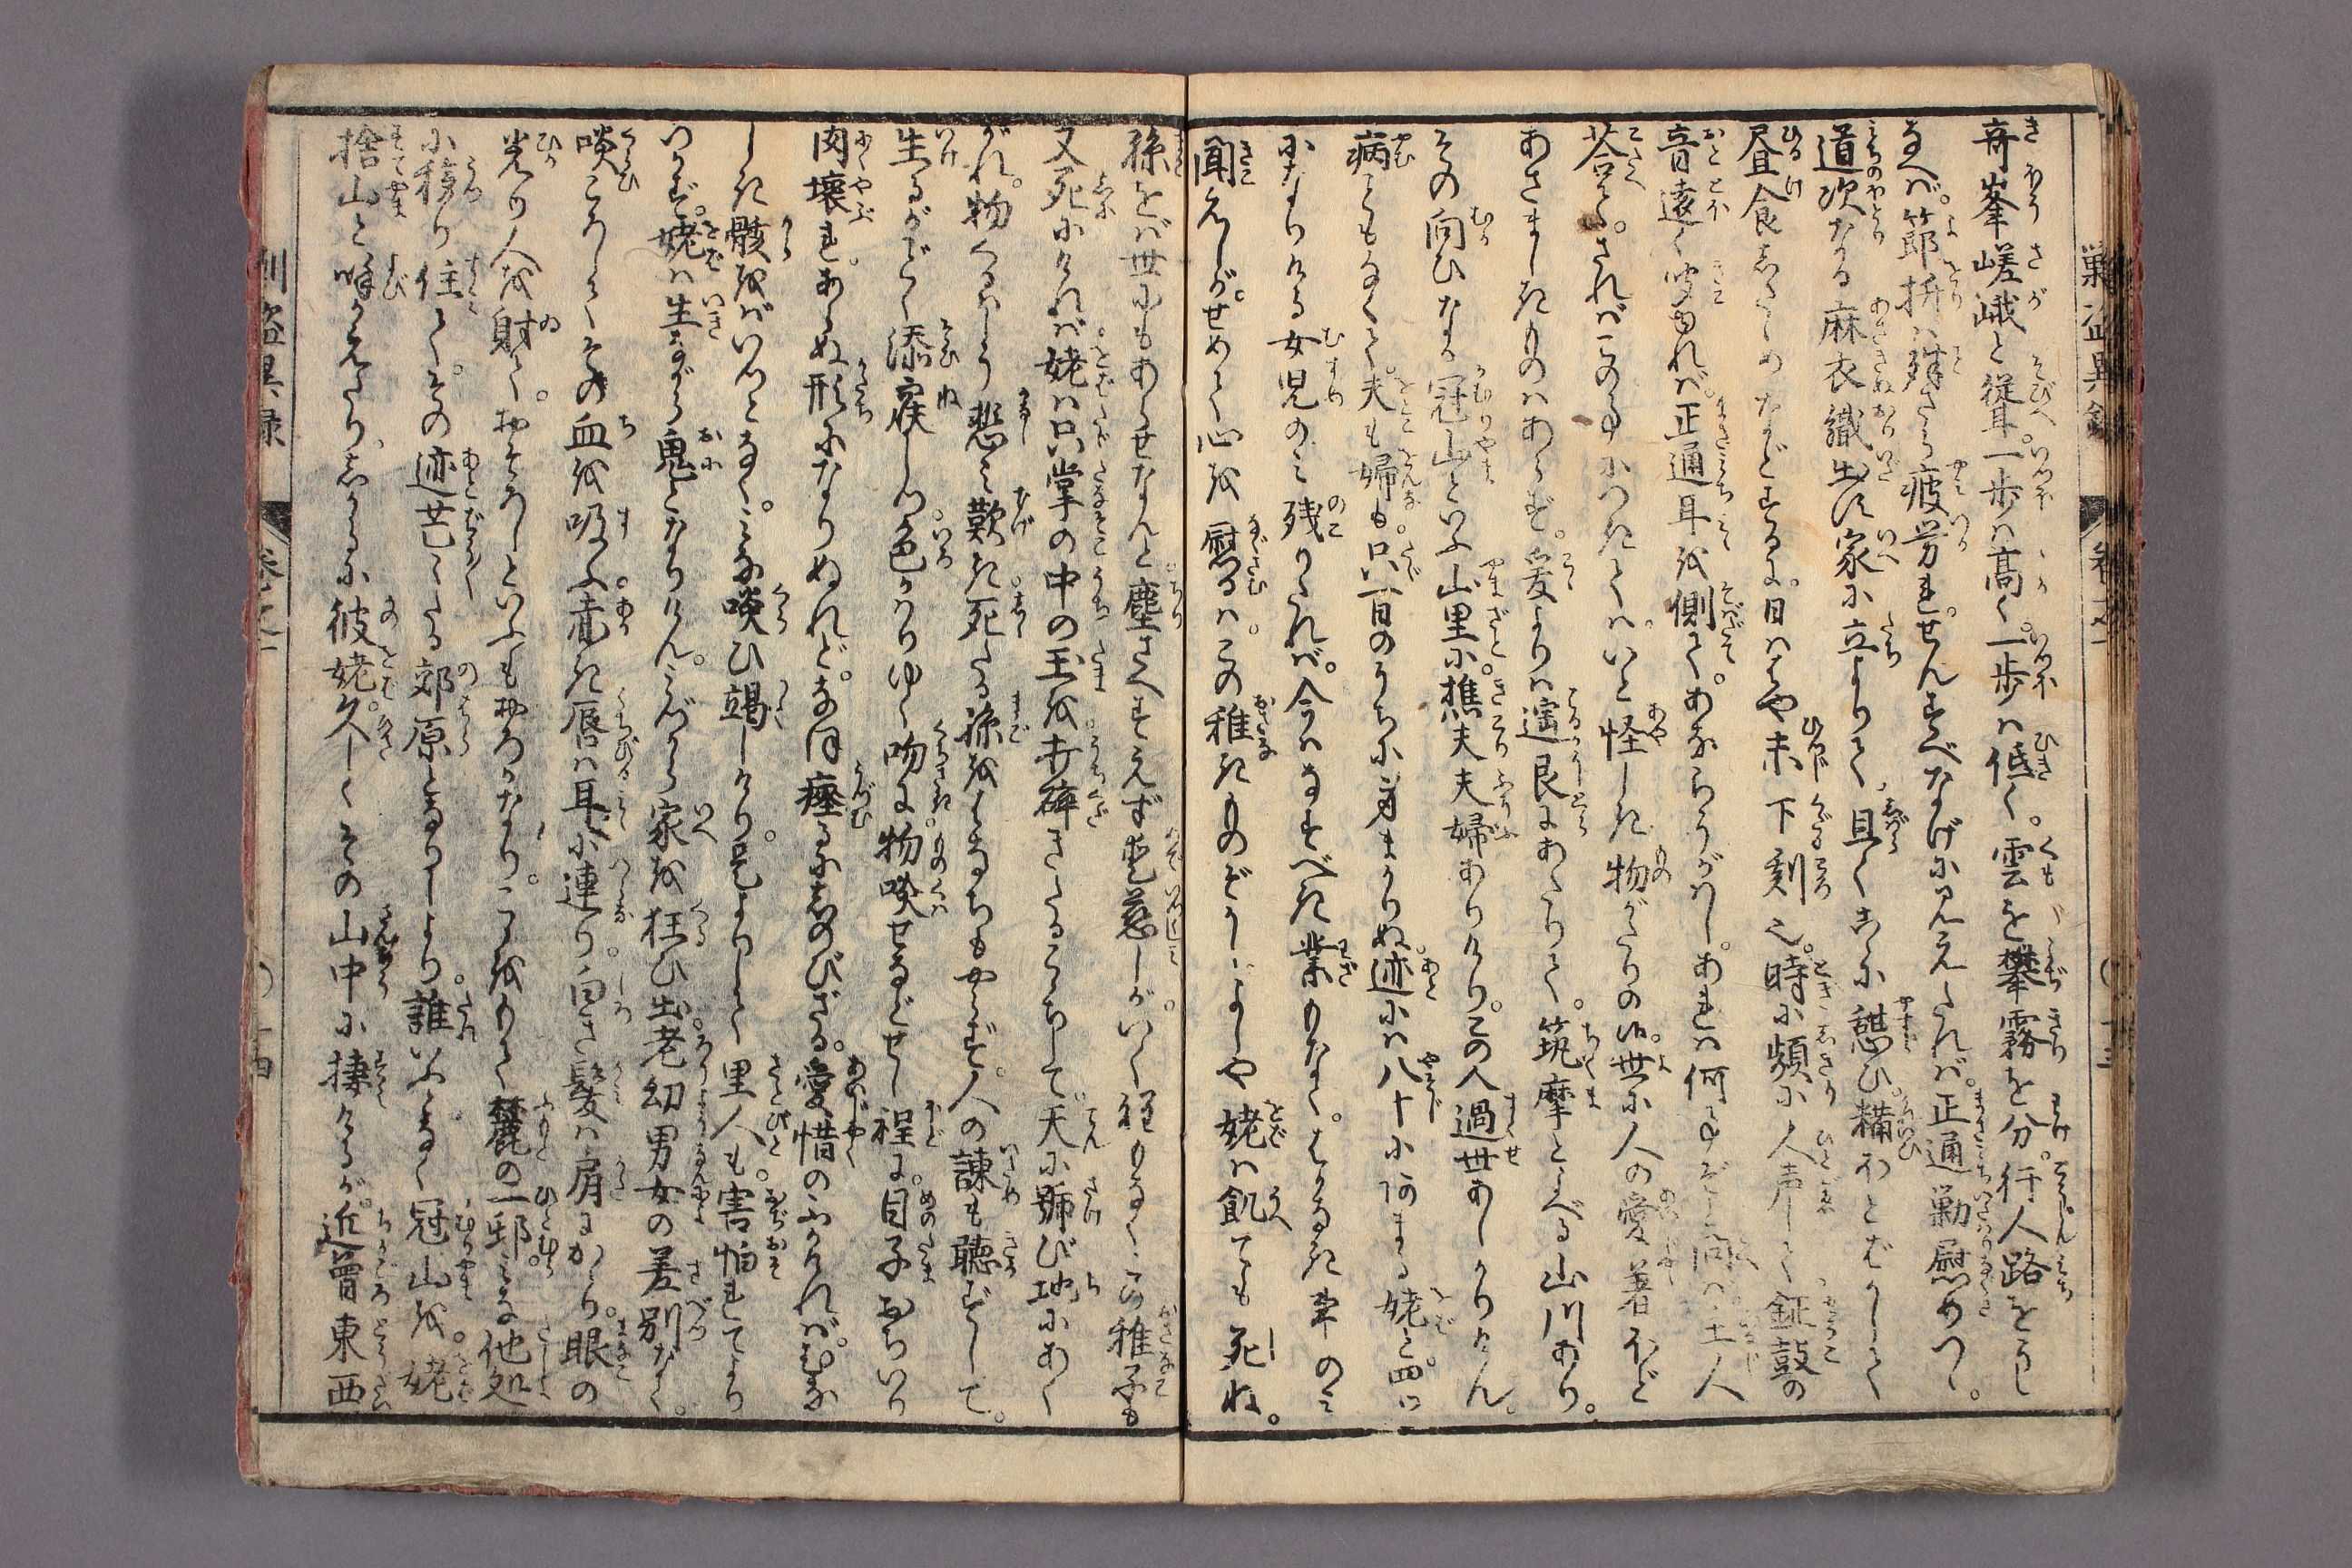 奇峯嵯峨と聳。一歩ハ高く。一歩ハ低く。雲を攀霧を分。行人路をうし
なへバ。節折ハ殊さら疲労れ。せんすべなげに見えたれバ。正通勦慰めつゝ。
道次なる麻衣織出す家に立よりて。且くこゝに憩ひ。糒ほとばかして
昼食したゝめなどするに。日ハはや未下刻也。時に頻に人声して鉦鼓の
音遠く聞ゆれバ。正通耳を側て。あならうがはし。あれハ何事ぞと問バ。土人
荅て。されバこの事につきてハ。いと怪しき物がたりの候。世に人の愛着ほど
あさましきものハあらず。爰よりハ遥艮にあたりて。筑摩となへる山川あり。
その向ひなる冠山といふ山里に。樵夫夫婦ありけり。この人過世あしかりけん。
病ともなくて。夫も婦も。只一百のうちに身まかりぬ。迹にハ八十にあまる姥と。四ツ
になりける女児のミ残りたれバ。今ハなすべき業もなく。はかなき事のミ
聞えしが。せめて心を慰るハ。この稚きものぞかし。よしや姥ハ飢ても死ね。
孫をバ世にもあらせなんと。塵さへすえず愛慈しが。いく程もなくこの稚子も
又死にければ。姥ハ只掌の中の玉を打砕きたるこゝちして。天に号び地にあく
がれ。物くるハしう悲ミ歎き。死たる孫をはなちもやらず。人の諫も聴ずして。
生るがごとく添寐しつ。色かはりゆく吻に。物啖せなどせし程に。目子おちいり
肉壊れ。あらぬ形になりぬれど。なほ瘞るにしのびざる。愛惜のふかければ。むな
しき骸をバいつとなく。ミな啖ひ竭しけり。是よりして里人も。害怕れてより
つかず。姥ハ生ながら鬼となりけん。ミづから家を狂ひ出。老幼男女の差別なく。
啖ころしてその血を吸ふ。赤き唇ハ耳に連り。白き髪ハ肩にかゝり。眼の
光り人を射て。おそろしといふもおろかなり。こゝをもて麓の一邨。ミな他処
に移り住て。その迹茫々たる郊原となりしより。誰いふとなく冠山を。姥
捨山と喚かえたり。しかるに彼姥。久しくその山中に棲けるが。近曽東西
巣盗異録
巻之二